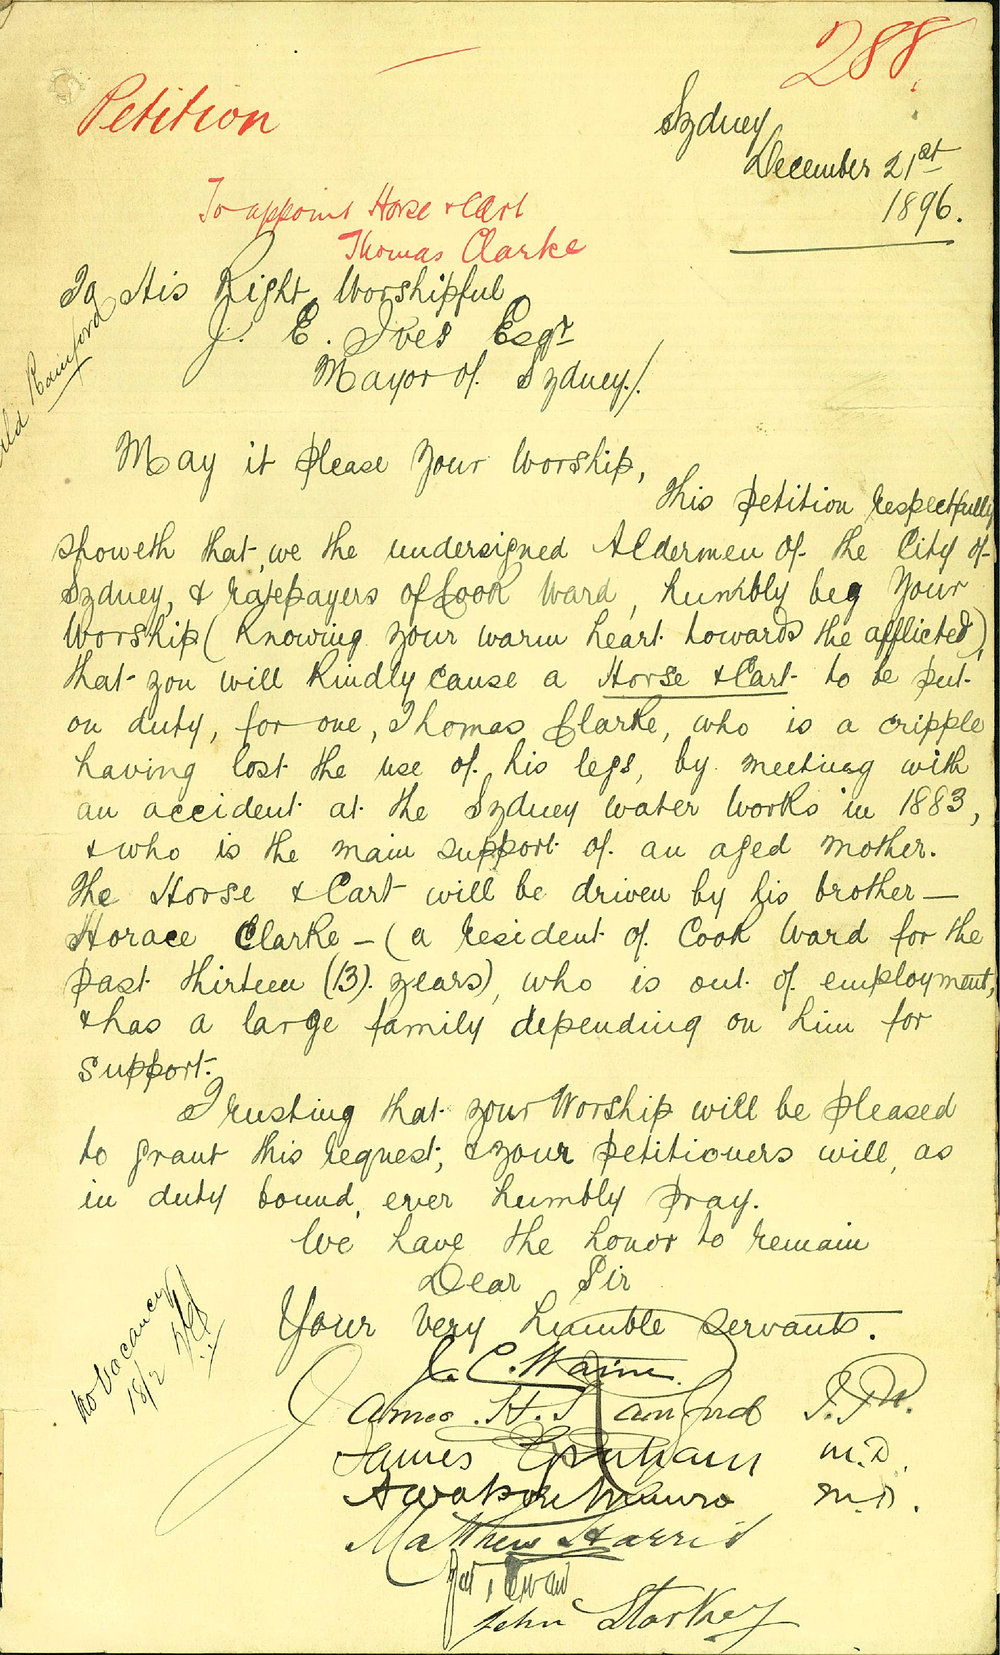 288
Petition
Sydney
December 21st
1896.
To appoint Horse & Cart
Thomas Clarke
To His Right Worshipful
J. E. Ives Esqr
Mayor of Sydney/.
Rainford
May it please Your Worship,
This petition respectfully
showeth that, we the undersigned Aldermen of the City of
Sydney, & ratepayers of Cook Ward, humbly beg Your
Worship (knowing your warm heart towards the afflicted),
that you will kindly cause a Horse & Cart to be put
on duty, for one, Thomas Clarke, who is a cripple
having lost the use of his legs, by meeting with
an accident at the Sydney Water Works in 1883,
& who is the main support of an aged mother.
The Horse & Cart will be driven by his brother —
Horace Clarke — (a resident of Cook Ward for the
past thirteen (13) years), who is out of employment,
& has a large family depending on him for
support.
Trusting that your Worship will be pleased
to grant this request, & your petitioners will, as
in duty bound, ever humbly pray.
We have the honor to remain
Dear Sir
Your very humble servants.
No vacancy
18/2
J. C. Waine
James H. Rainford J.P.
James Graham M.D.
M.D.
Matthew Harris
John Starkey